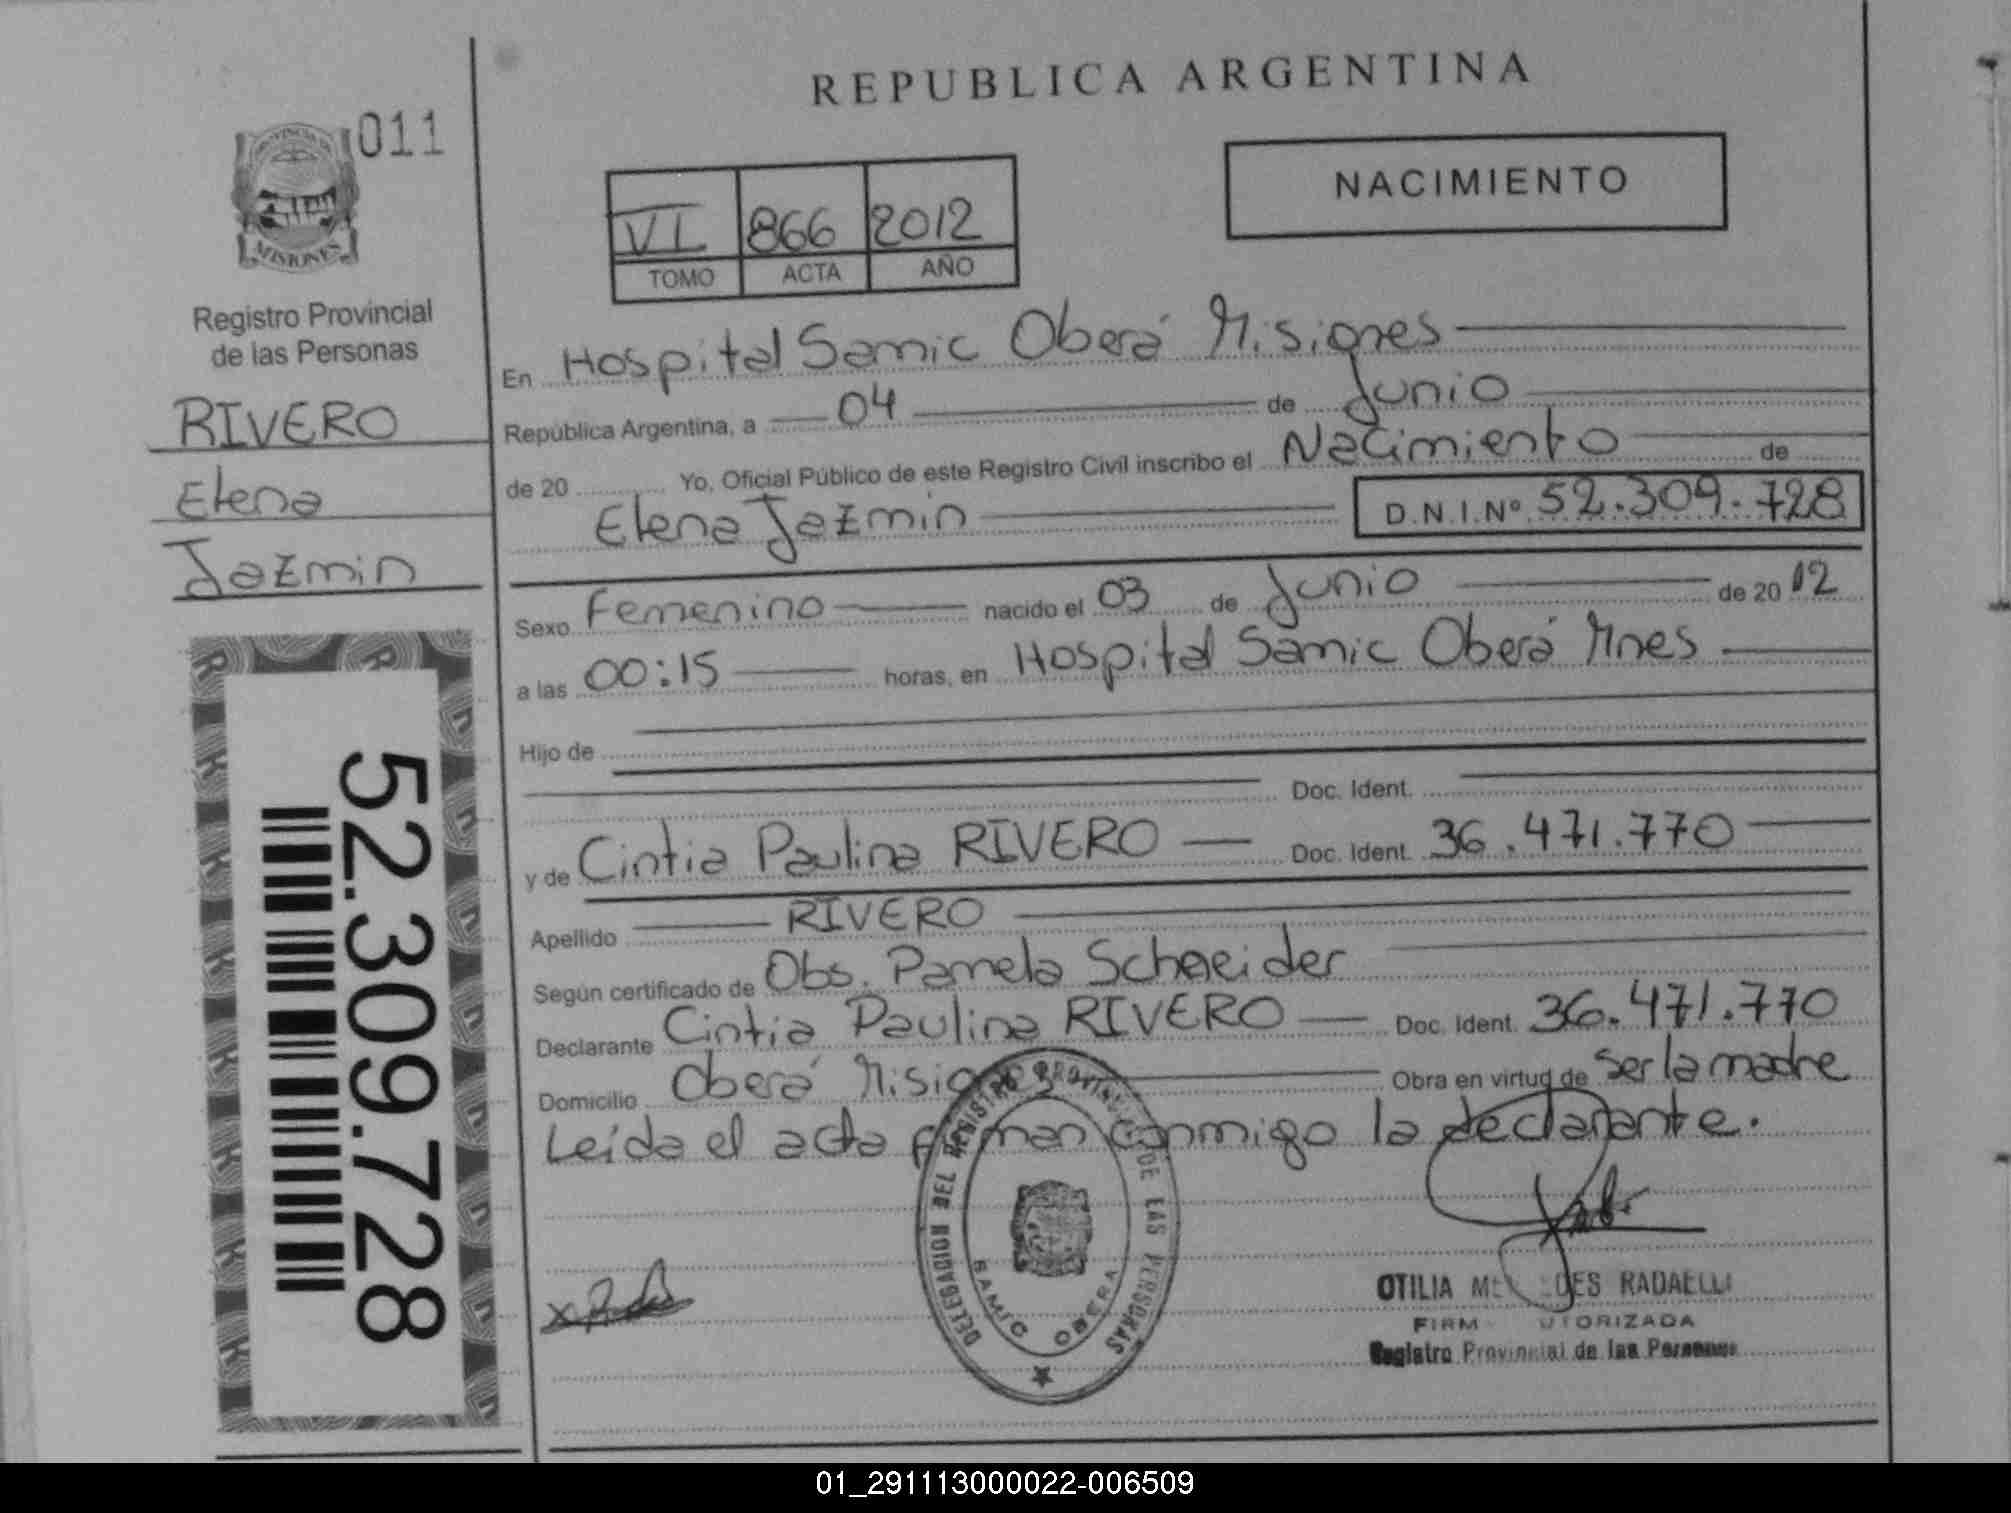 011
PROVINCIA DE
MISIONES
Registro Provincial
de las Personas
RIVERO
Elena
Jazmin
52.309.728
REPUBLICA ARGENTINA
NACIMIENTO
VI 866 2012
TOMO ACTA AÑO
En Hospital Samic Oberá Misiones
República Argentina, a 04 de Junio
de 20 Yo, Oficial Público de este Registro Civil inscribo el Nacimiento de
Elena Jazmin D.N.I.Nº 52.309.728
Sexo Femenino nacido el 03 de Junio de 2012
a las 00:15 horas, en Hospital Samic Oberá Mnes
Hijo de
Doc. Ident.
y de Cintia Paulina RIVERO Doc. Ident. 36.471.770
Apellido RIVERO
Según certificado de Obs. Pamela Schneider
Declarante Cintia Paulina RIVERO Doc. Ident. 36.471.770
Domicilio Oberá Misiones Obra en virtud de ser la madre
Leída el acta firman conmigo la declarante.
DELEGACION DEL REGISTRO PROVINCIAL DE LAS PERSONAS
SAMIC OBERA
OTILIA RADAELLI
FIRMA AUTORIZADA
Registro Provincial de las Personas
01_291113000022-006509